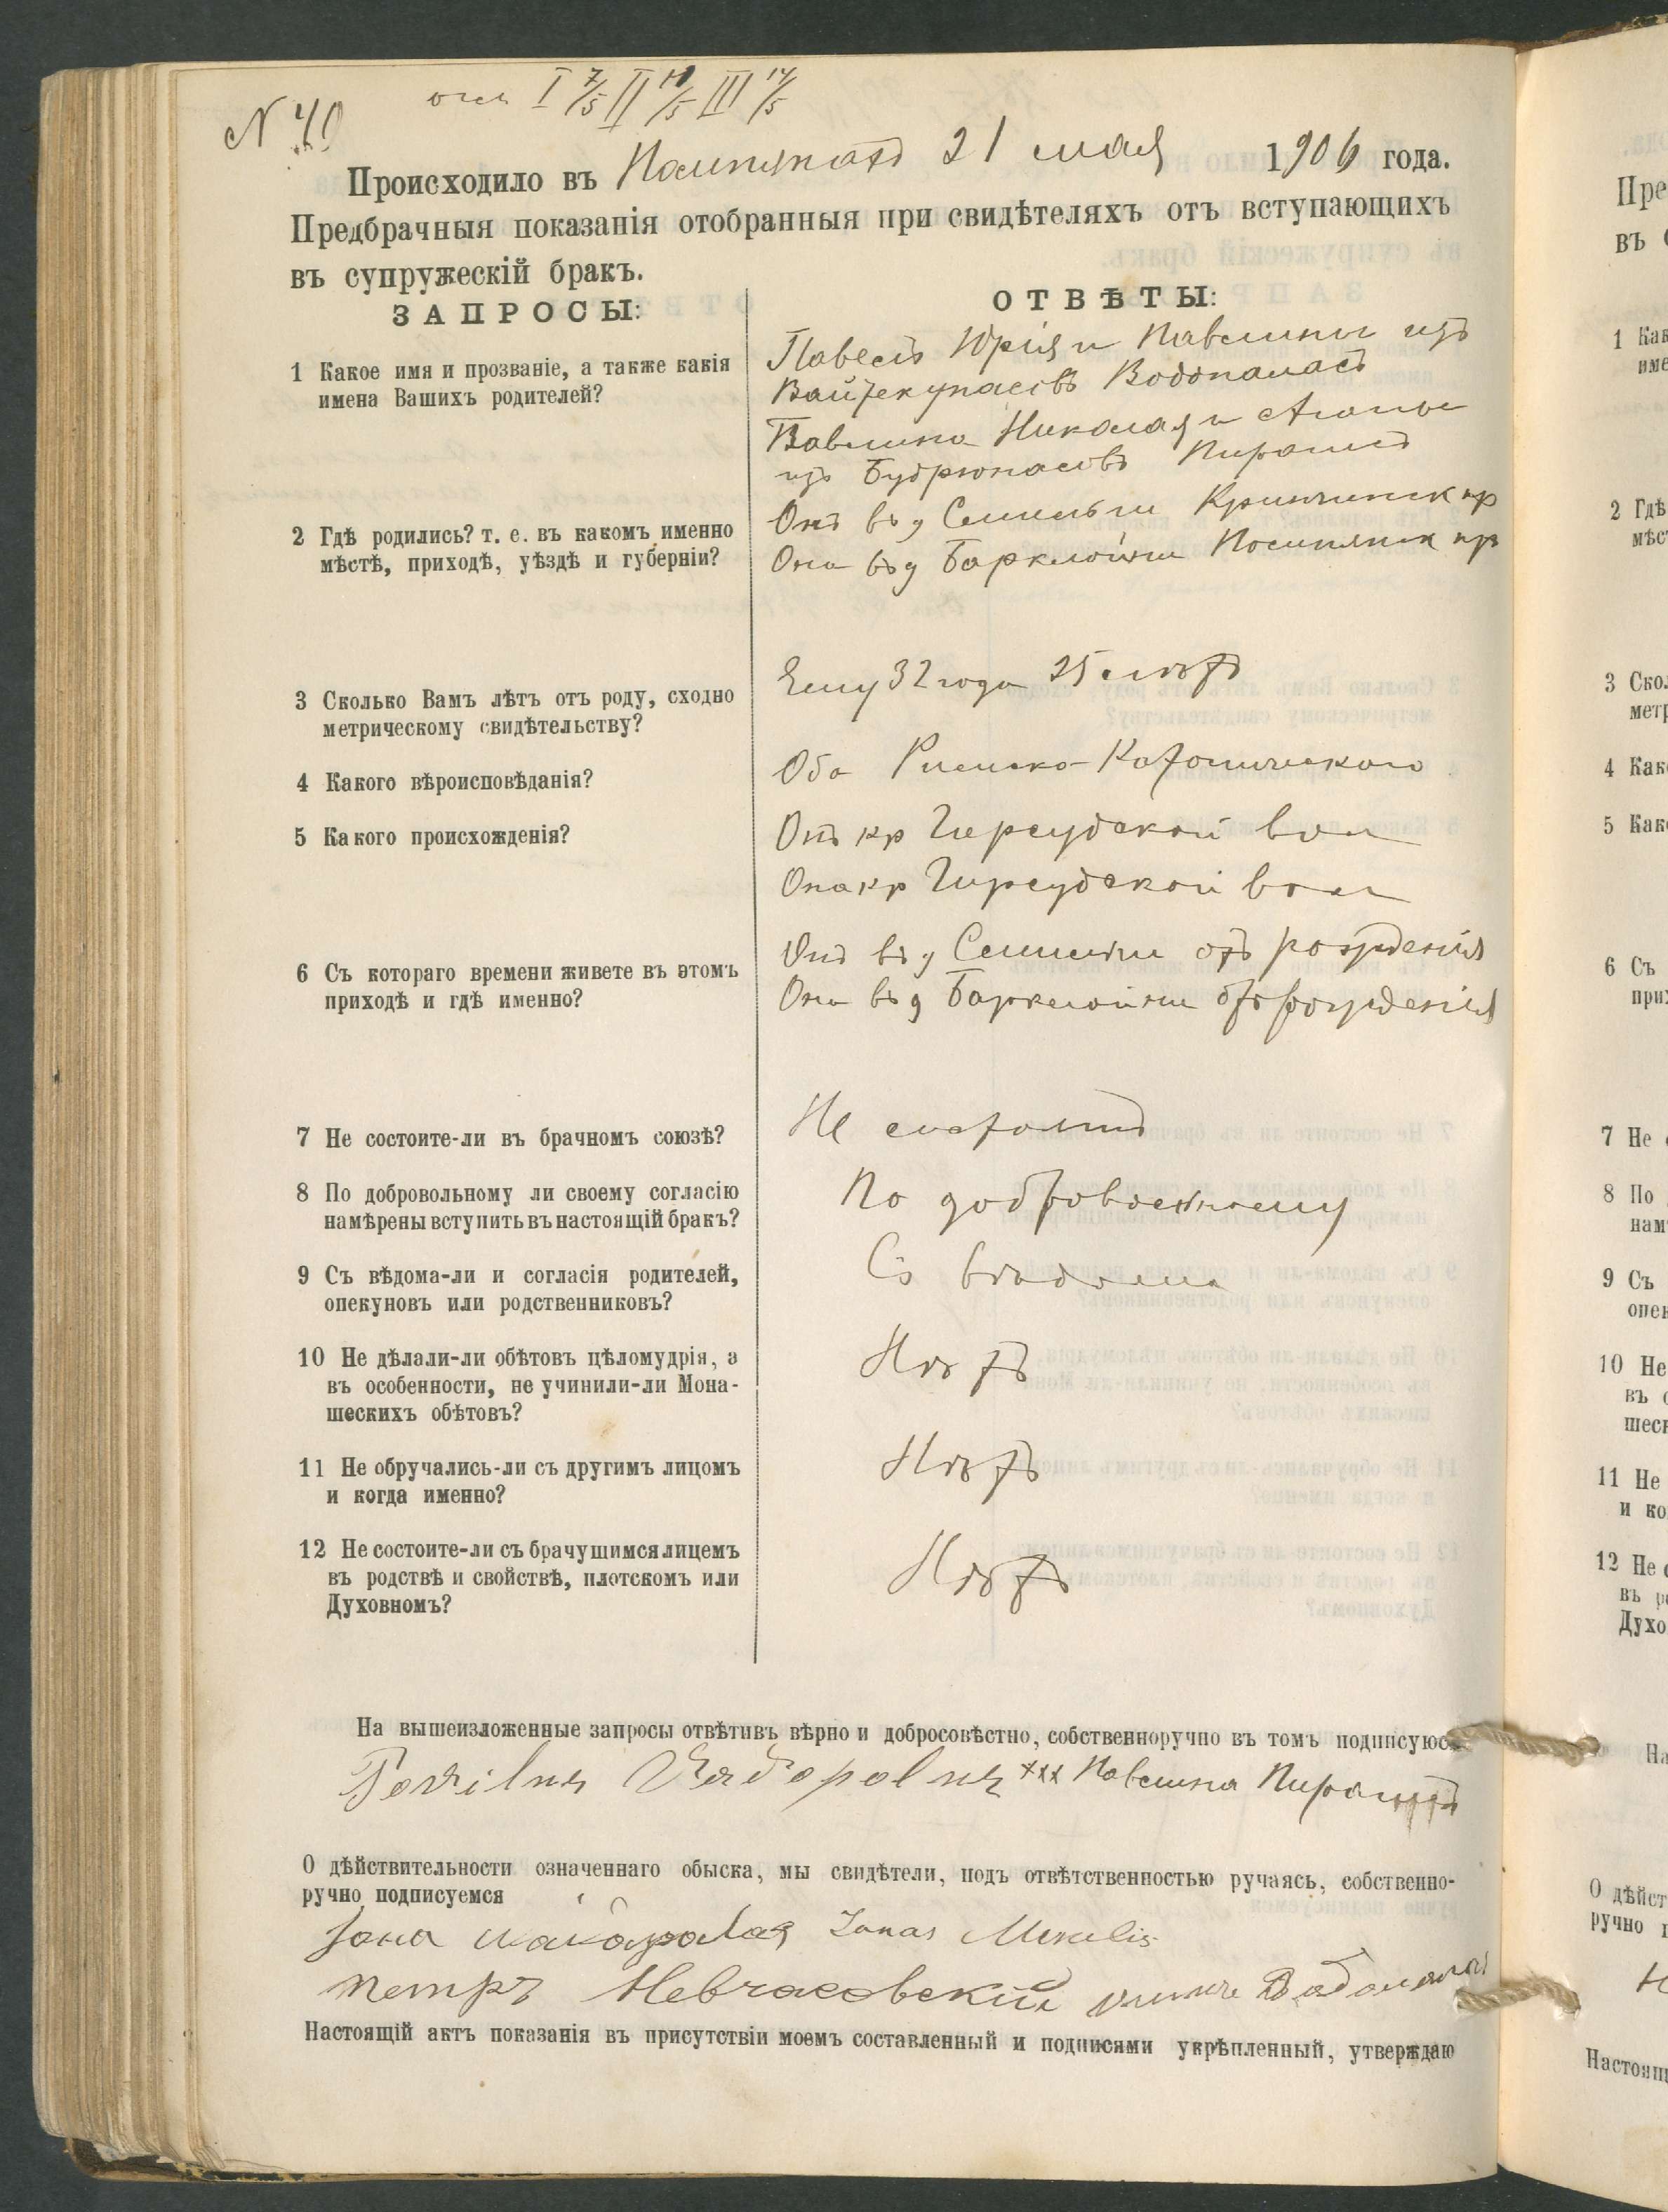 N 40
огл I 7/5 II /5 III 14/5
Происходило въ 21 мая 1906 года.
Предбрачныя показанія отобранныя при свидѣтеляхъ отъ вступающихъ
въ супружескій бракъ.
ЗАПРОСЫ:
ОТВѢТЫ:
1 Какое имя и прозваніе, а также какія
имена Вашихъ родителей?
Павелъ Юрія и Павлины изъ
Водопаласъ
Павлина Николая и
изъ Пирашъ
2 Гдѣ родились? т. е. въ какомъ именно
мѣстѣ, приходѣ, уѣздѣ и губерніи?
Онъ въ д пр
Она въ д пр
3 Сколько Вамъ лѣтъ отъ роду, сходно
метрическому свидѣтельству?
Ему 32 года 25 лѣтъ
4 Какого вѣроисповѣданія?
Оба Римско-Католическаго
5 Какого происхожденія?
Онъ кр Гирсудской вол
Она кр Гирсудской вол
6 Съ котораго времени живете въ этомъ
приходѣ и гдѣ именно?
Онъ въ д отъ рожденія
Она въ д отъ рожденія
7 Не состоите-ли въ брачномъ союзѣ?
Не состоятъ
8 По добровольному ли своему согласію
намѣрены вступить въ настоящій бракъ?
По добровольному
9 Съ вѣдома-ли и согласія родителей,
опекуновъ или родственниковъ?
Съ вѣдома
10 Не дѣлали-ли обѣтовъ цѣломудрія, а
въ особенности, не учинили-ли Мона-
шескихъ обѣтовъ?
Нѣтъ
11 Не обручались-ли съ другимъ лицомъ
и когда именно?
Нѣтъ
12 Не состоите-ли съ брачущимся лицемъ
въ родствѣ и свойствѣ, плотскомъ или
Духовномъ?
Нѣтъ
На вышеизложенные запросы отвѣтивъ вѣрно и добросовѣстно, собственноручно въ томъ подписуюсь
Povilas xxx Павлина Пирашъ
О дѣйствительности означеннаго обыска, мы свидѣтели, подъ отвѣтственностью ручаясь, собственно-
ручно подписуемся
Jonas
Петръ
Настоящій актъ показанія въ присутствіи моемъ составленный и подписями укрѣпленный, утверждаю